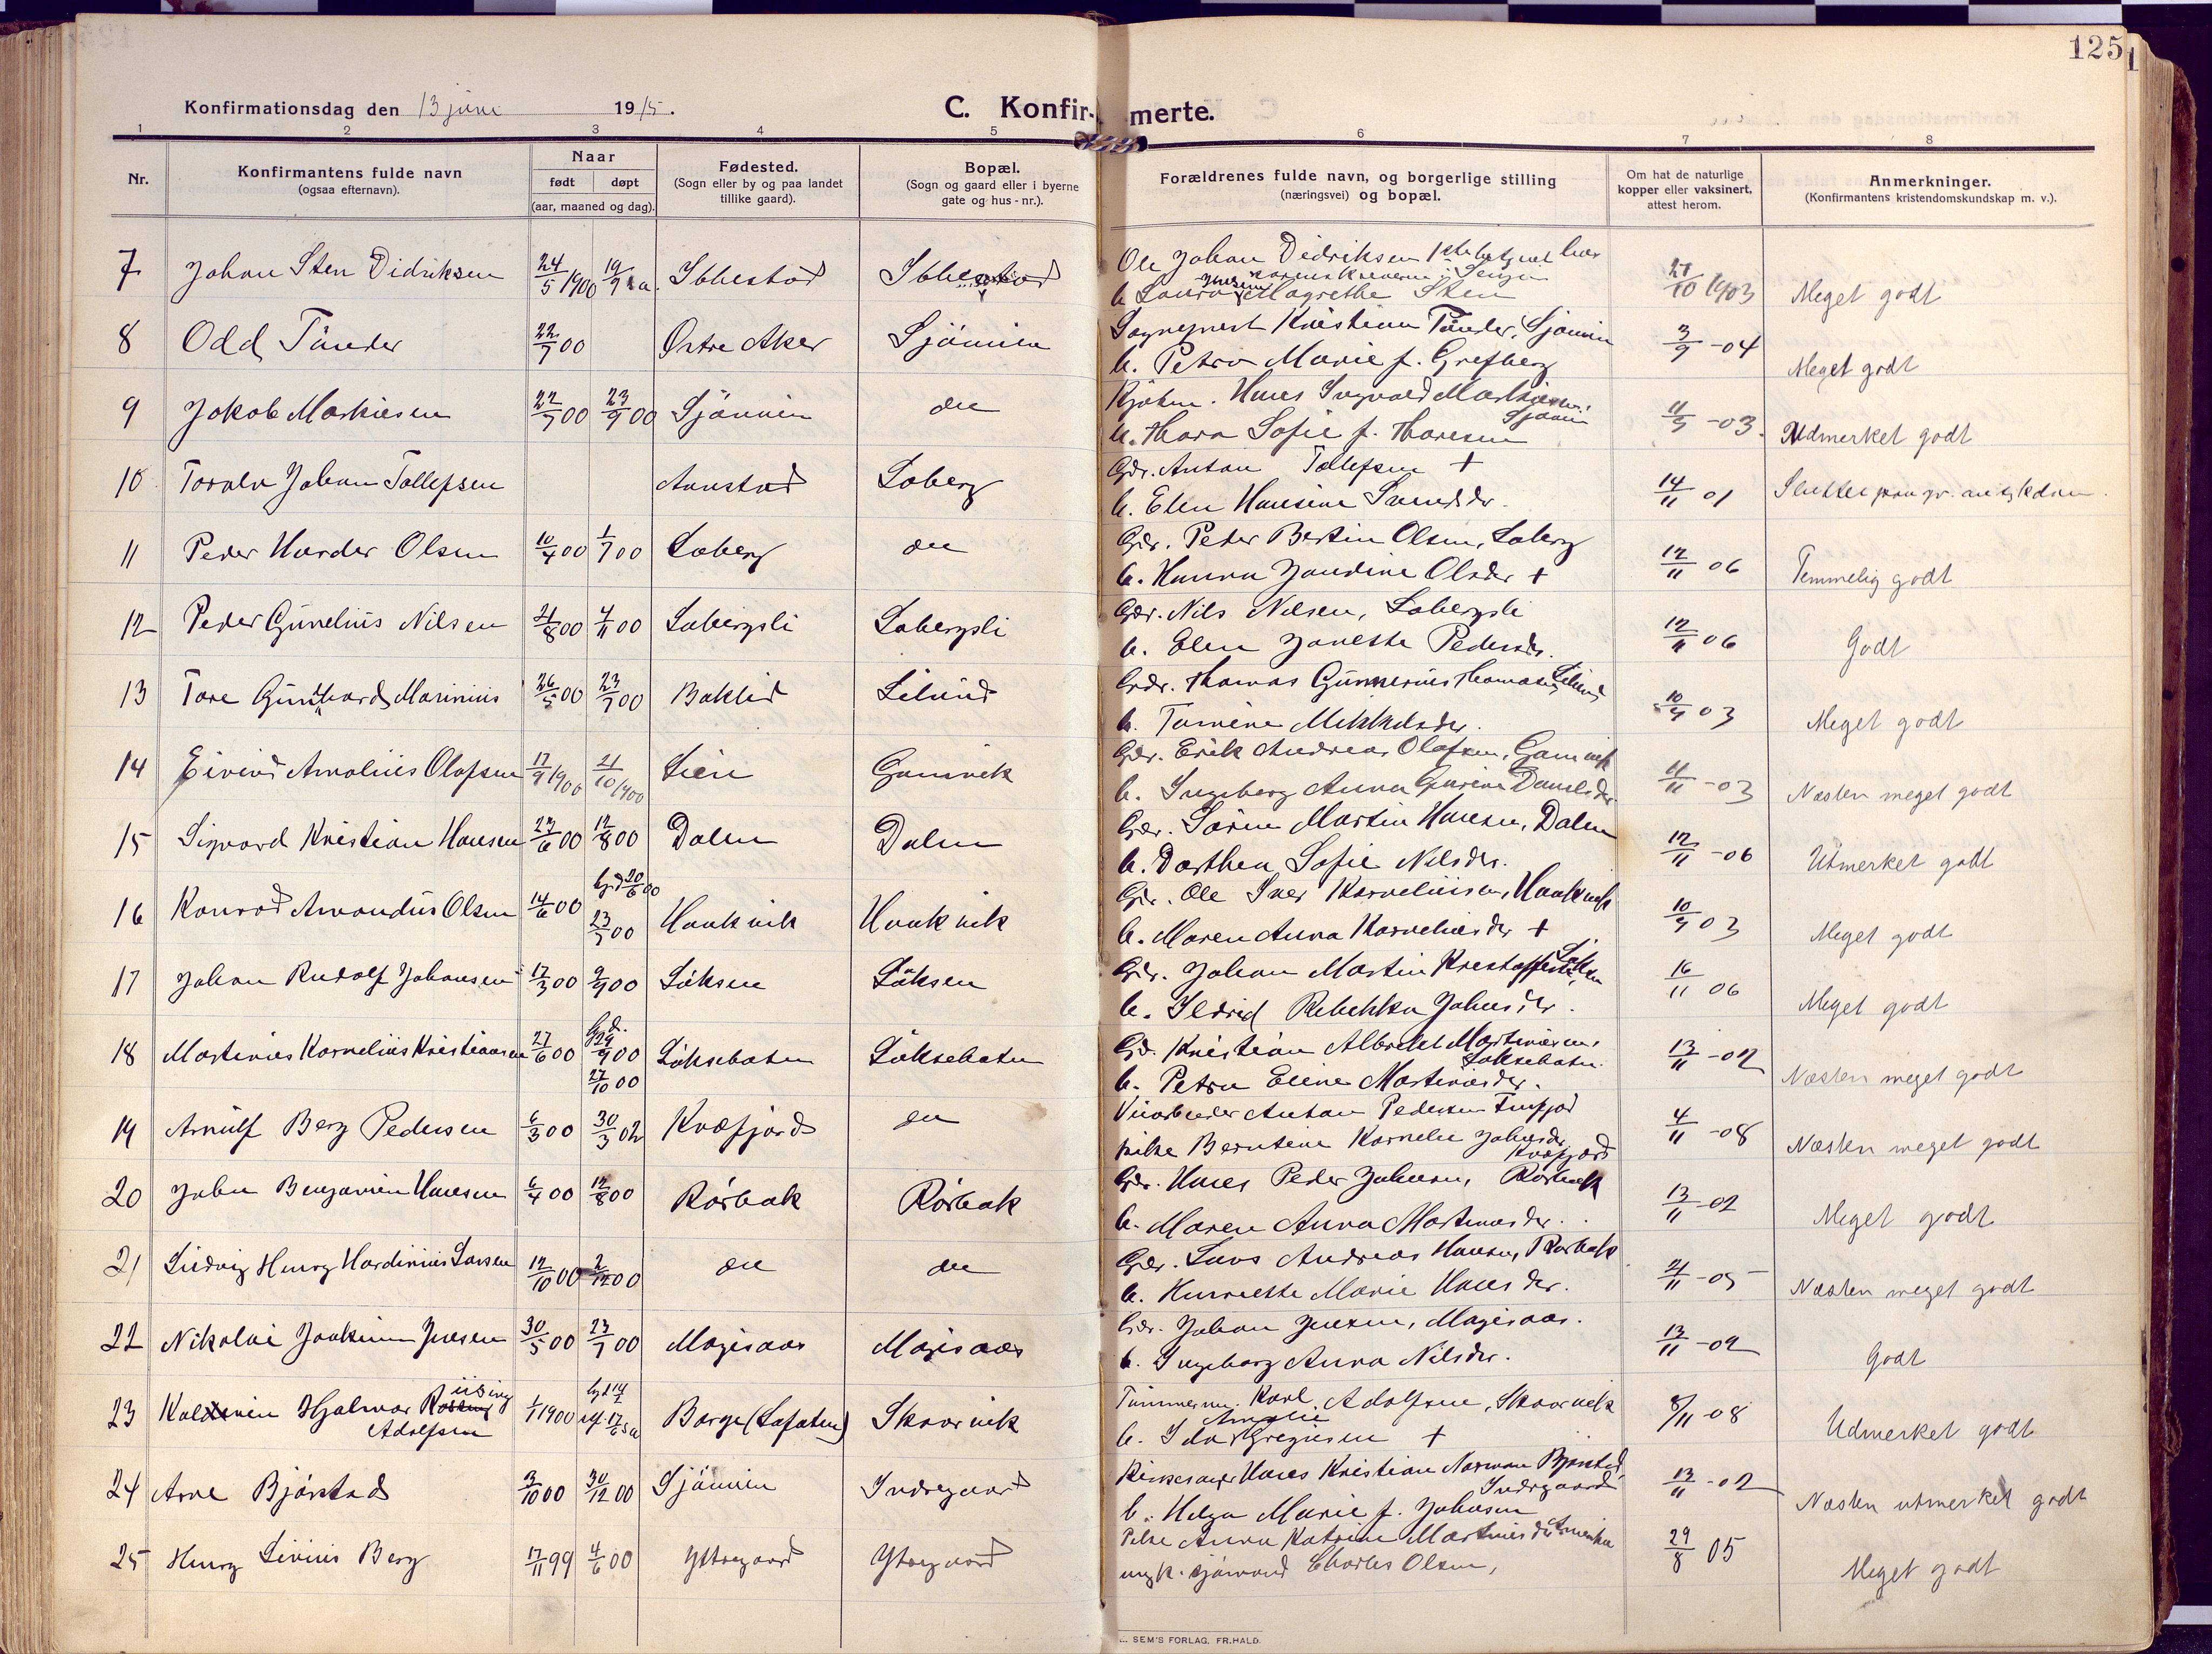 125
Konfirmationsdag den 13 juni 1915.
C. Konfirmerte.
1 2 3 4 5 6 7 8
Nr.
Konfirmantens fulde navn
(ogsaa efternavn).
Naar
født døpt
(aar, maaned og dag).
Fødested.
(Sogn eller by og paa landet
tillike gaard).
Bopæl.
(Sogn og gaard eller i byerne
gate og hus-nr.).
Forældrenes fulde navn, og borgerlige stilling
(næringsvei) og bopæl.
Om hat de naturlige
kopper eller vaksinert,
attest herom.
Anmerkninger.
(Konfirmantens kristendomskundskap m. v.).
7 Johan Sten Didriksen 24/5 1900 19/9 s.a. Ibbestad Ibbestad
Ole Johan Didriksen
h. Laura Magrethe Sten 27/10 1903 Meget godt
8 Odd Tönder 22/7 00 Østre Aker Sjöveien
Sogneprest Kristian Tönder, Sjöveien
h. Petra Marie f. Grefberg 3/9 -04 Meget godt
9 Jakob Markusen 22/7 00 23/9 00 Sjöveien do
Kjøbm. Hans Ingvald
h. Thora Sofie f. Thoresen -03 Udmerket godt
10 Toralv Johan Tollefsen Aunstad Soberg
Gdr. Anton Tollefsen +
h. Elen Hansine 14/11 01
11 Peder Harder Olsen 10/4 00 1/7 00 Soberg do
Gdr. Peder Bertin Olsen, Soberg
h. Hanna Jandine Olsdr + 12/11 06 Temmelig godt
12 Peder Gunelius Nilsen 21/8 00 4/11 00 Sobergsli Sobergsli
Gdr. Nils Nilsen, Sobergsli
h. Elen Janette Pedersdr. 12/11 06 Godt
13 Tore Gunhard Marinius 26/5 00 23/7 00 Baklid Lilund
Gdr. Thomas Gunnerius Thomasen, Lilund
h. Tomine Mikkelsdr. 10/9 03 Meget godt
14 Eivind Arnolius Olafsen 17/9 1900 21/10 1900 Lien Gamvik
Gdr. Erik Andreas Olafsen, Gamvik
h. Ingeborg Anna Danielsdr. 11/11 -03 Næsten meget godt
15 Sigvard Kristian Hansen 23/6 00 12/8 00 Dalen Dalen
Gdr. Sören Martin Hansen, Dalen
h. Dorthea Sofie Nilsdr. 12/11 -06 Utmerket godt
16 Konrad Amandus Olsen 14/6 00 hjd 20/6 00
23/7 00 Haukvik Haukvik
Gdr. Ole Iver Korneliusen, Haukvik
h. Maren Anna Korneliusdr + 10/9 03 Meget godt
17 Johan Rudolf Johansen 17/3 00 9/9 00 Löksen Löksen
Gdr. Johan Martin Kristoffersen, Löksen
h. Ildrid Rebekka Johnsdr. 16/11 06 Meget godt
18 Martinius Kornelius Kristiansen 27/6 00 hjd. 29/9 00
27/10 00 Löksebotn Löksebotn
Gdr. Kristian Albrikt Martinusen,
Löksebotn.
h. Petra Eline Martinusdr. 13/11 -02 Næsten meget godt
19 Arnulf Berg Pedersen 6/3 00 30/3 02 Kvæfjord do
Anton Pedersen
pike Berntine Kornelie Johnsdr.
Kvæfjord 4/11 -08 Næsten meget godt
20 John Benjamin Hansen 6/4 00 12/8 00 Rörbak Rörbak
Gdr. Hans Peder Johnsen, Rörbak
h. Maren Anna Martinusdr. 13/11 -02 Meget godt
21 Ludvig Henry Hardinius Larsen 12/10 00 2/12 00 do do
Gdr. Lars Andreas Hansen, Rörbak
h. Henriette Marie Hansdr. 21/11 -05 Næsten meget godt
22 Nikolai Joakim Jensen 30/5 00 23/7 00 Mojisaas Mojisaas
Gdr. Johan Jensen, Mojisaas.
h. Ingeborg Anna Nilsdr. 13/11 -02 Godt
23 Hjalmar Adolfsen 1/1 1900 Borge (Lofoten) Skaarvik
Tömmerm. Karl Adolfsen, Skaarvik
h. Ida Amalie Gregusen + 8/11 -08 Udmerket godt
24 Arne Björstad 3/10 00 30/12 00 Sjöveien Indregaard
Kirkesanger Hans Kristian Norman Björstad,
Indregaard
h. Helga Marie f. Johnsen 13/11 -02 Næsten utmerket godt
25 Henry Livius Berg 17/11 99 4/6 00 Yttregaard Ytregaard
Pike Anna Katrine Martinusdr Amerika
ungk. sjömand Charles Olsen, 29/8 05 Meget godt
SEM'S FORLAG. FR. HALD.